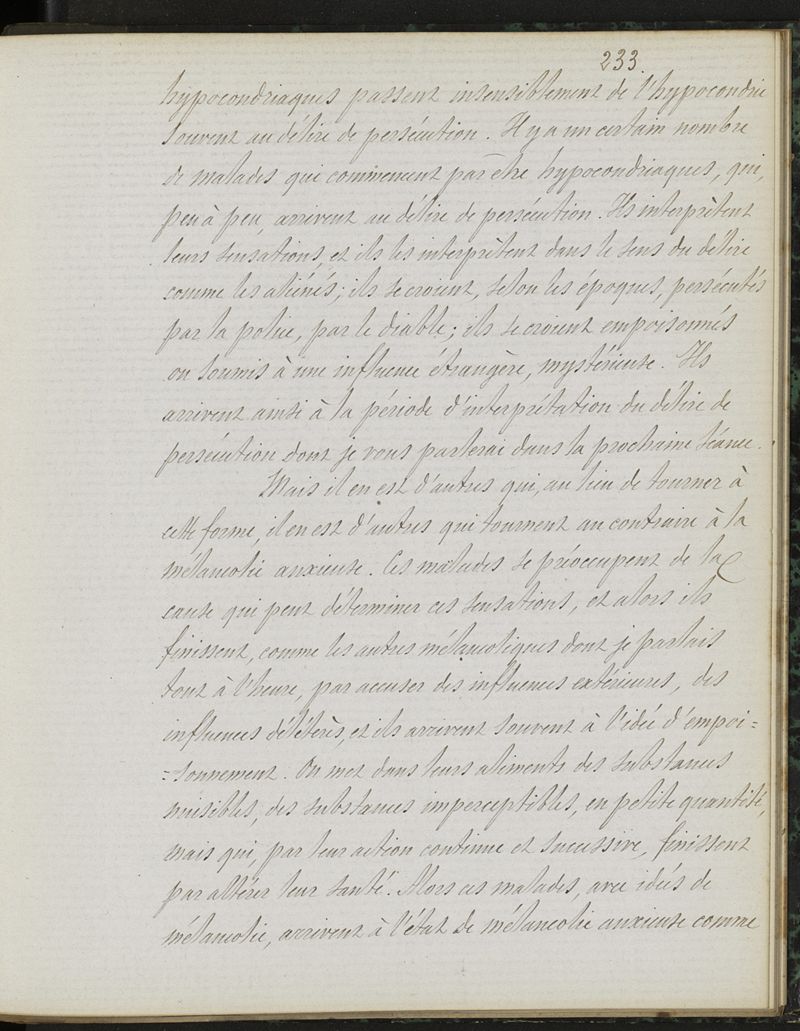 233
hypocondriaques passent insensiblement de l'hypocondrie
souvent au délire de persécution. Il y a un certain nombre
de malades qui commencent par être hypocondriaques, qui,
peu à peu, arrivent au délire de persécution. Ils interprètent
leurs sensations, et ils les interprètent dans le sens du délire
comme les aliénés; ils se croient, selon les époques, persécutés
par la police, par le diable; ils se croient empoisonnés
ou soumis à une influence étrangère, mystérieuse. Ils
arrivent ainsi à la période d'interprétation du délire de
persécution dont je vous parlerai dans la prochaine séance.
Mais il en est d'autres qui, au lieu de tourner à
cette forme, il en est d'autres qui tournent au contraire à la
mélancolie anxieuse. Ces malades se préoccupent de la
cause qui peut déterminer ces sensations, et alors ils
finissent, comme les autres mélancoliques dont je parlais
tout à l'heure, par accuser des influences extérieures, des
influences délétères, et ils arrivent souvent à l'idée d'empoi=
=sonnement. On met dans leurs aliments des substances
nuisibles, des substances imperceptibles, en petite quantité,
mais qui, par leur action continue et successive, finissent
par altérer leur santé. Alors ces malades, avec idées de
mélancolie, arrivent à l'état de mélancolie anxieuse comme